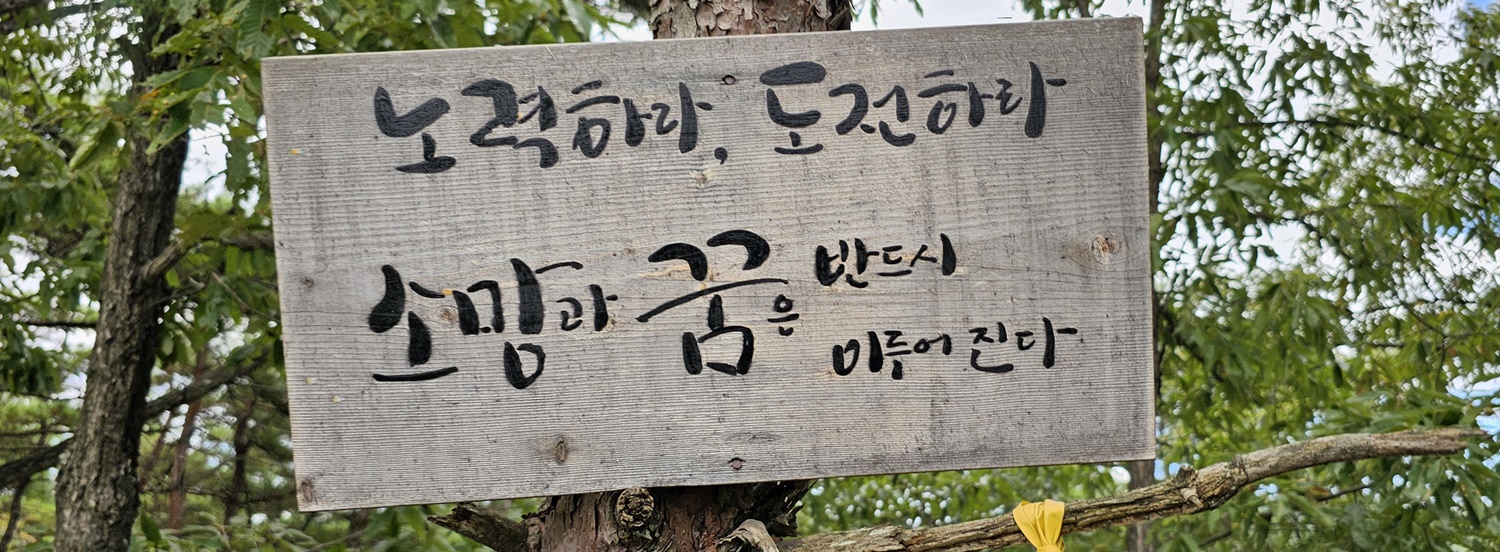 노력하라, 도전하라
소망과 꿈은 반드시
이루어 진다